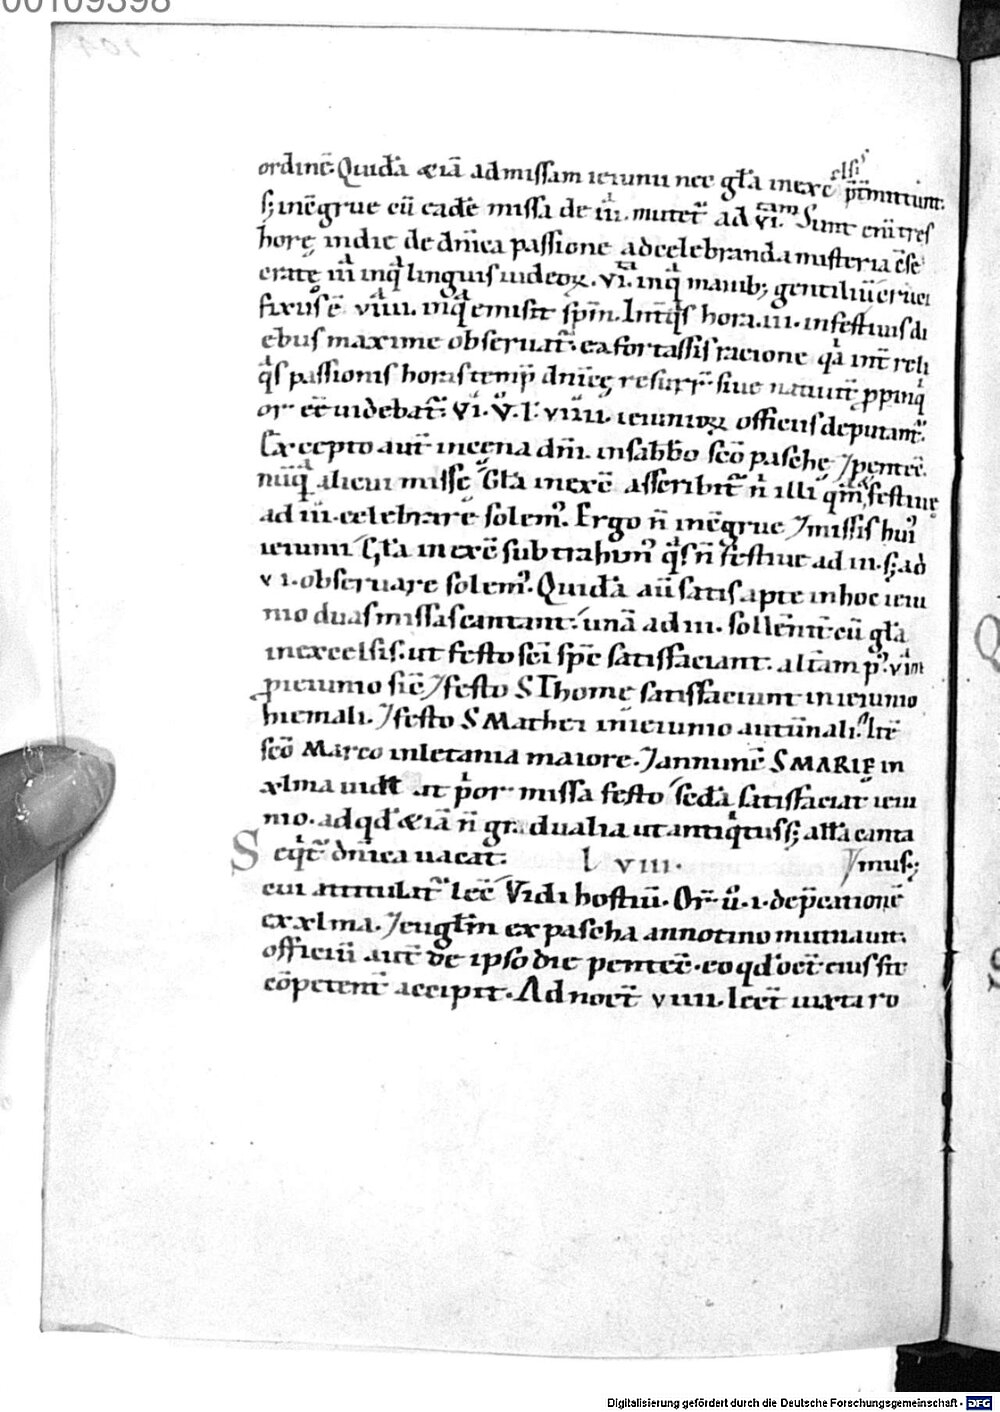 00109398
elsis
ordinē. Quidā &iā ad missam ieiunii nec gła in exc̄ p̄tmittunt.
s; in c̄grue cū eadē missa de iii. mutet̄ ad vi. Sunt eni tres
horę in die de dn̄ica passione ad celebranda misteria c̄se
cratę iii inq̄ linguis iudeoꝝ. vi. inq̄ manib; gentiliū cruci
fixus ē viiii. inq̄ emisit sp̄m. Int̄ q̄s hora .iii. in festiuis di
ebus maxime obseruat̄. ea fortassis racione q̄a int̄ reli
q̄s passionis horas temp̄ dn̄icę resurr̄ siue natiuit̄ ꝓpinq̄
or eē uidebat̄. vi. v̄. ł viiii. ieiunioꝝ officiis deputant̄.
Excepto aut̄ in cęna dn̄i. in sabb̄o sc̄o paschę ⁊ pentec̄.
nūq̄ alicui missę Gła in exc̄ asseribit̄ n̄ illi q̄m festiuę
ad iii. celebrare solem᷒. Ergo n̄ in c̄grue ⁊ missis hui᷒
ieiunii Gła in exc̄ subtrahim᷒ q̄s n̄ festiue ad iii. s; ad
vi. obseruare solem᷒. Quidā aū satis apte in hoc ieiu
nio duas missas cantant. unā ad iii. sollēnit̄ cū gła
in excelsis. ut festo sc̄i sp̄c satisfaciant. altam p᷒ viiii
ꝓ ieiunio sic̄ ⁊ festo S Thomę satisfaciunt in ieiunio
hiemali. ⁊ festo S Mathei in ieiunio autūnali. Itē
sc̄o Marco in letania maiore. ⁊ annunc̄ S MARIĘ in
xlma uidēt ut p̄or missa festo sēda satisfaciat ieiu
nio. ad qd̄ &iā n̄ gradualia ut antiq̄tus s; alła canta
Seq̄t̄ dn̄ica uacat. lviii. ⁊ mus;
cui attitulat̄ lec̄ Vidi hostiū. Or̄ ū. i. dep̄cationē
ex xlma. ⁊ eugłm ex pascha annotino mutuaui.
officiū aut̄ de ipso die pentec̄. eo qd̄ oct̄ eius sit
cōpetent̄ accipit. Ad noct̄ viiii. lect̄ iuxta ro
Digitalisierung gefördert durch die Deutsche Forschungsgemeinschaft - DFG